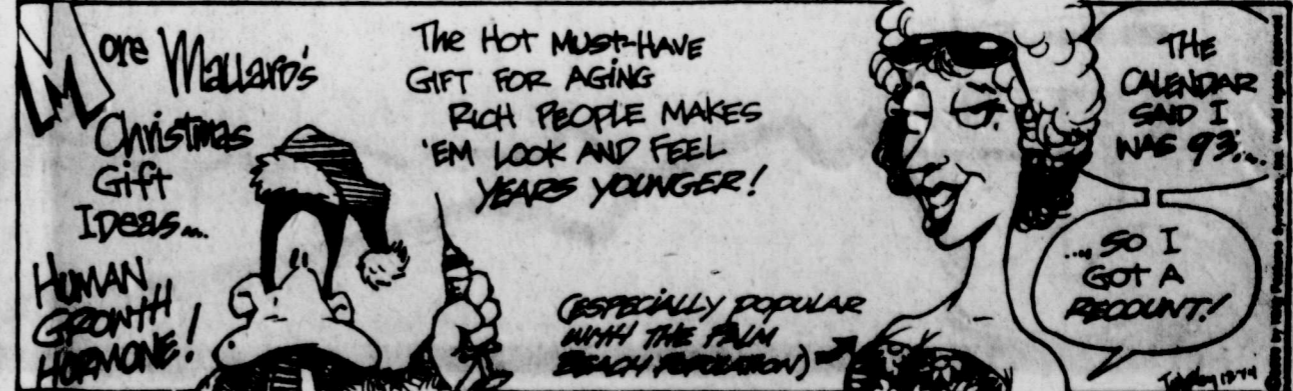 More Mallard's
Christmas
Gift
Ideas...
HUMAN
GROWTH
HORMONE!
The HOT MUST-HAVE
GIFT FOR AGING
RICH PEOPLE MAKES
'EM LOOK AND FEEL
YEARS YOUNGER!
(ESPECIALLY POPULAR
WITH THE PALM
BEACH POPULATION)
THE
CALENDAR
SAID I
WAS 93....
....SO I
GOT A
RECOUNT!
Syndicate, Inc. World rights reserved